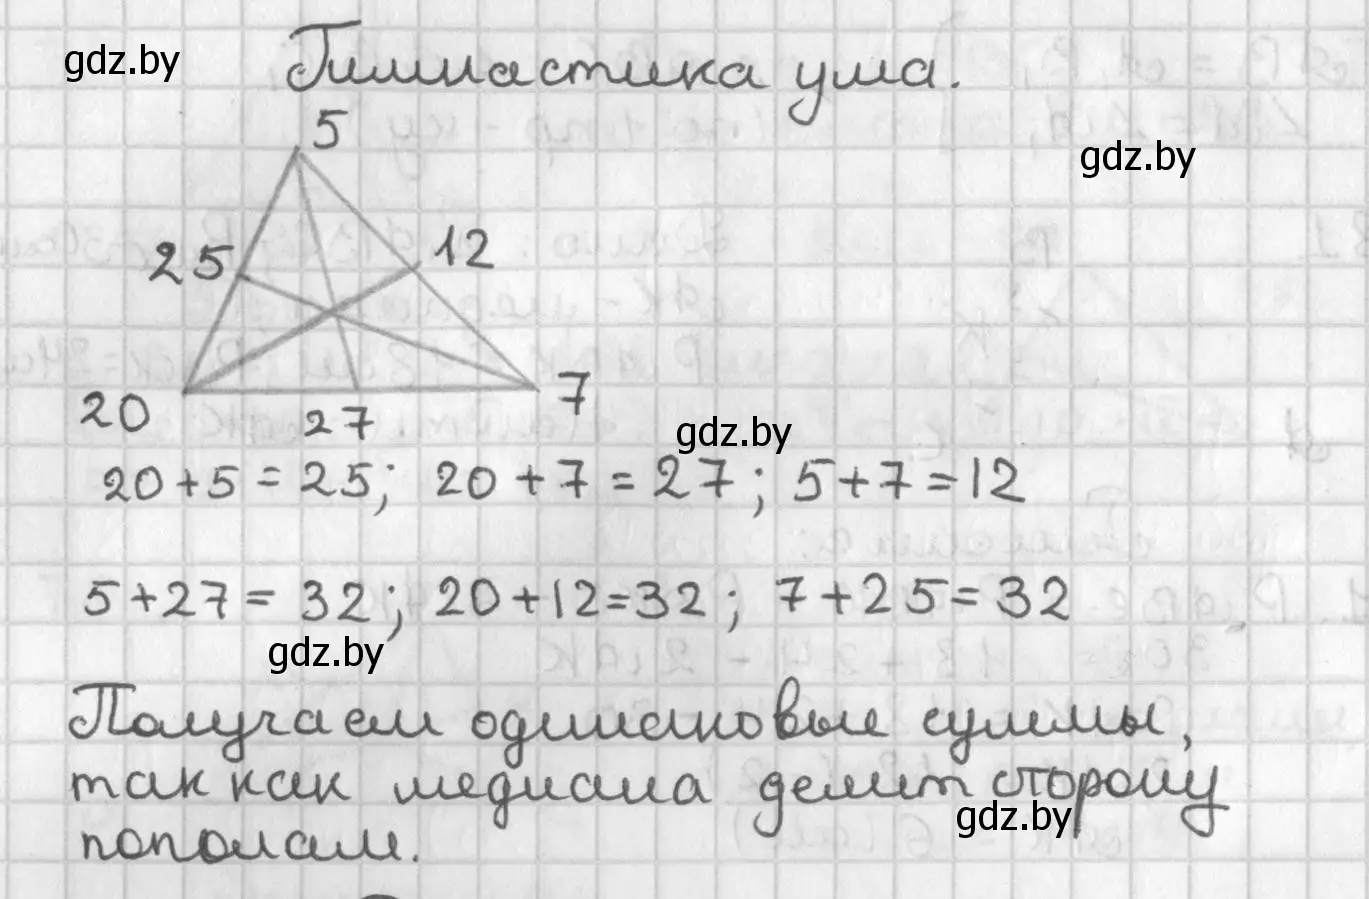 gdz.by
Гимнастика ума.
5
gdz.by
25
12
20
27
7
gdz.by
20+5=25; 20+7=27; 5+7=12
5+27=32; 20+12=32; 7+25=32
gdz.by
Получаем одинаковые суммы,
так как медиана делит сторону
gdz.by
пополам.